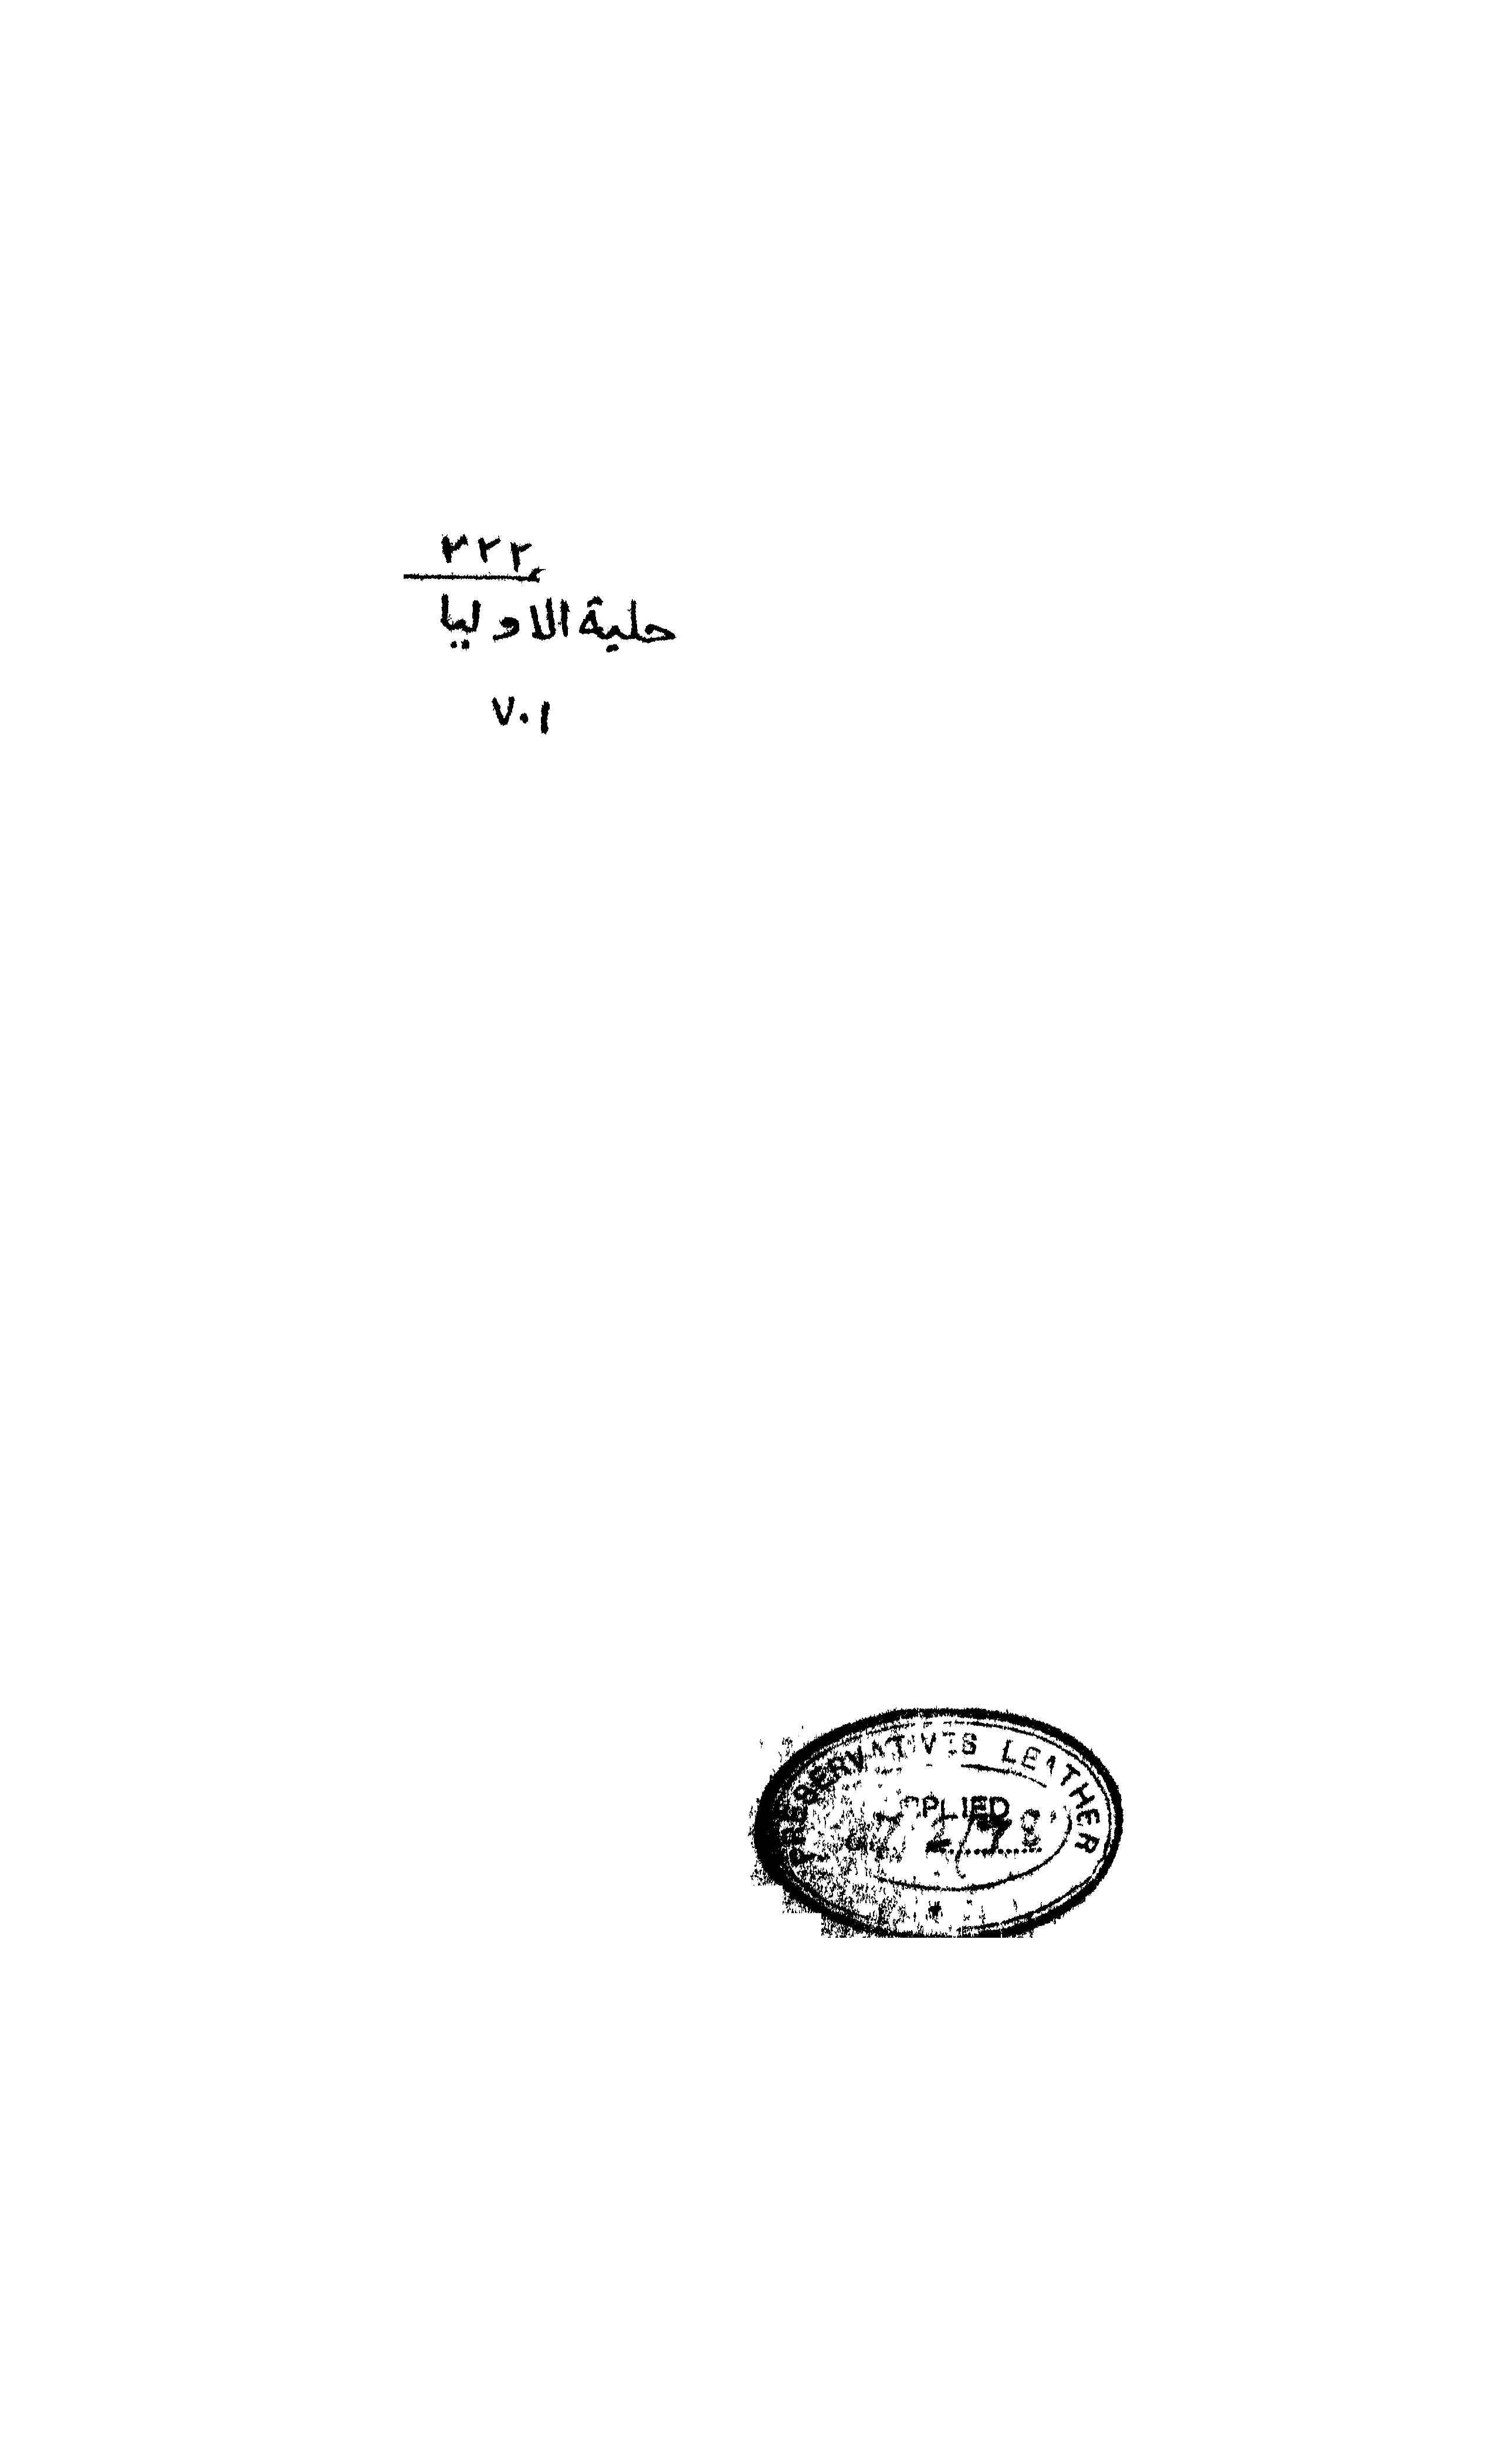 ٣٢٢
حلية الاوليا
٧٠١
PRESERVATIVES LEATHER
APPLIED